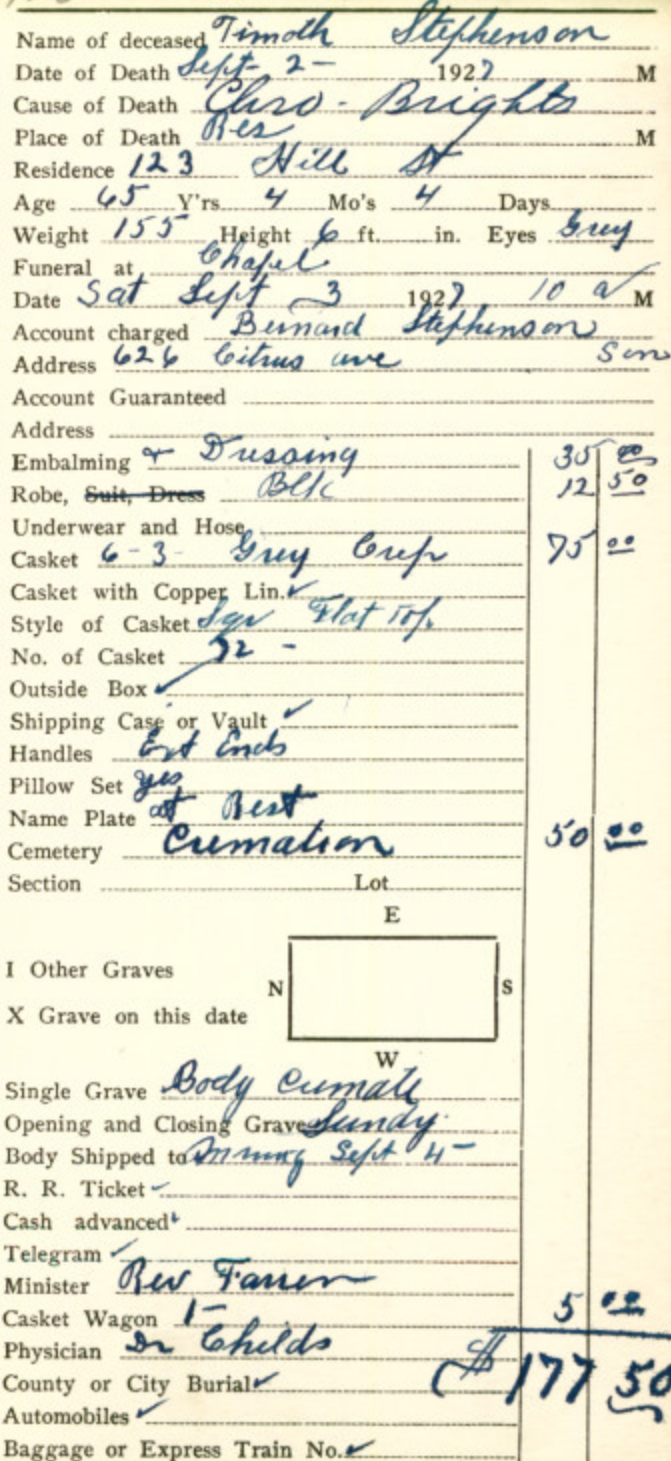 Name of deceased Timoth Stephenson
Date of Death Sept- 2- 1927 M
Cause of Death Chro - Brights
Place of Death Res M
Residence 123 Hill St
Age 65 Y'rs 4 Mo's 4 Days
Weight 155 Height 6 ft. in. Eyes Grey
Funeral at Chapel
Date Sat Sept 3 1927 10 a M
Account charged Bernard Stephenson
Address 626 Citrus ave Son
Account Guaranteed
Address
Embalming & Dressing 35 00
Robe, Suit, Dress Blk 12 50
Underwear and Hose
Casket 6-3- Grey Crep 75 00
Casket with Copper Lin. ✓
Style of Casket Sqr Flat Top
No. of Casket 72 -
Outside Box ✓
Shipping Case or Vault ✓
Handles Ext Ends
Pillow Set yes
Name Plate at Rest
Cemetery Cremation 50 00
Section Lot
E
I Other Graves
N S
X Grave on this date
W
Single Grave Body Cremate
Opening and Closing Grave Sundy
Body Shipped to Sept 4-
R. R. Ticket ✓
Cash advanced ✓
Telegram ✓
Minister Rev Farren
Casket Wagon 1- 5 00
Physician Dr Childs
$177 50
County or City Burial ✓
Automobiles ✓
Baggage or Express Train No. ✓